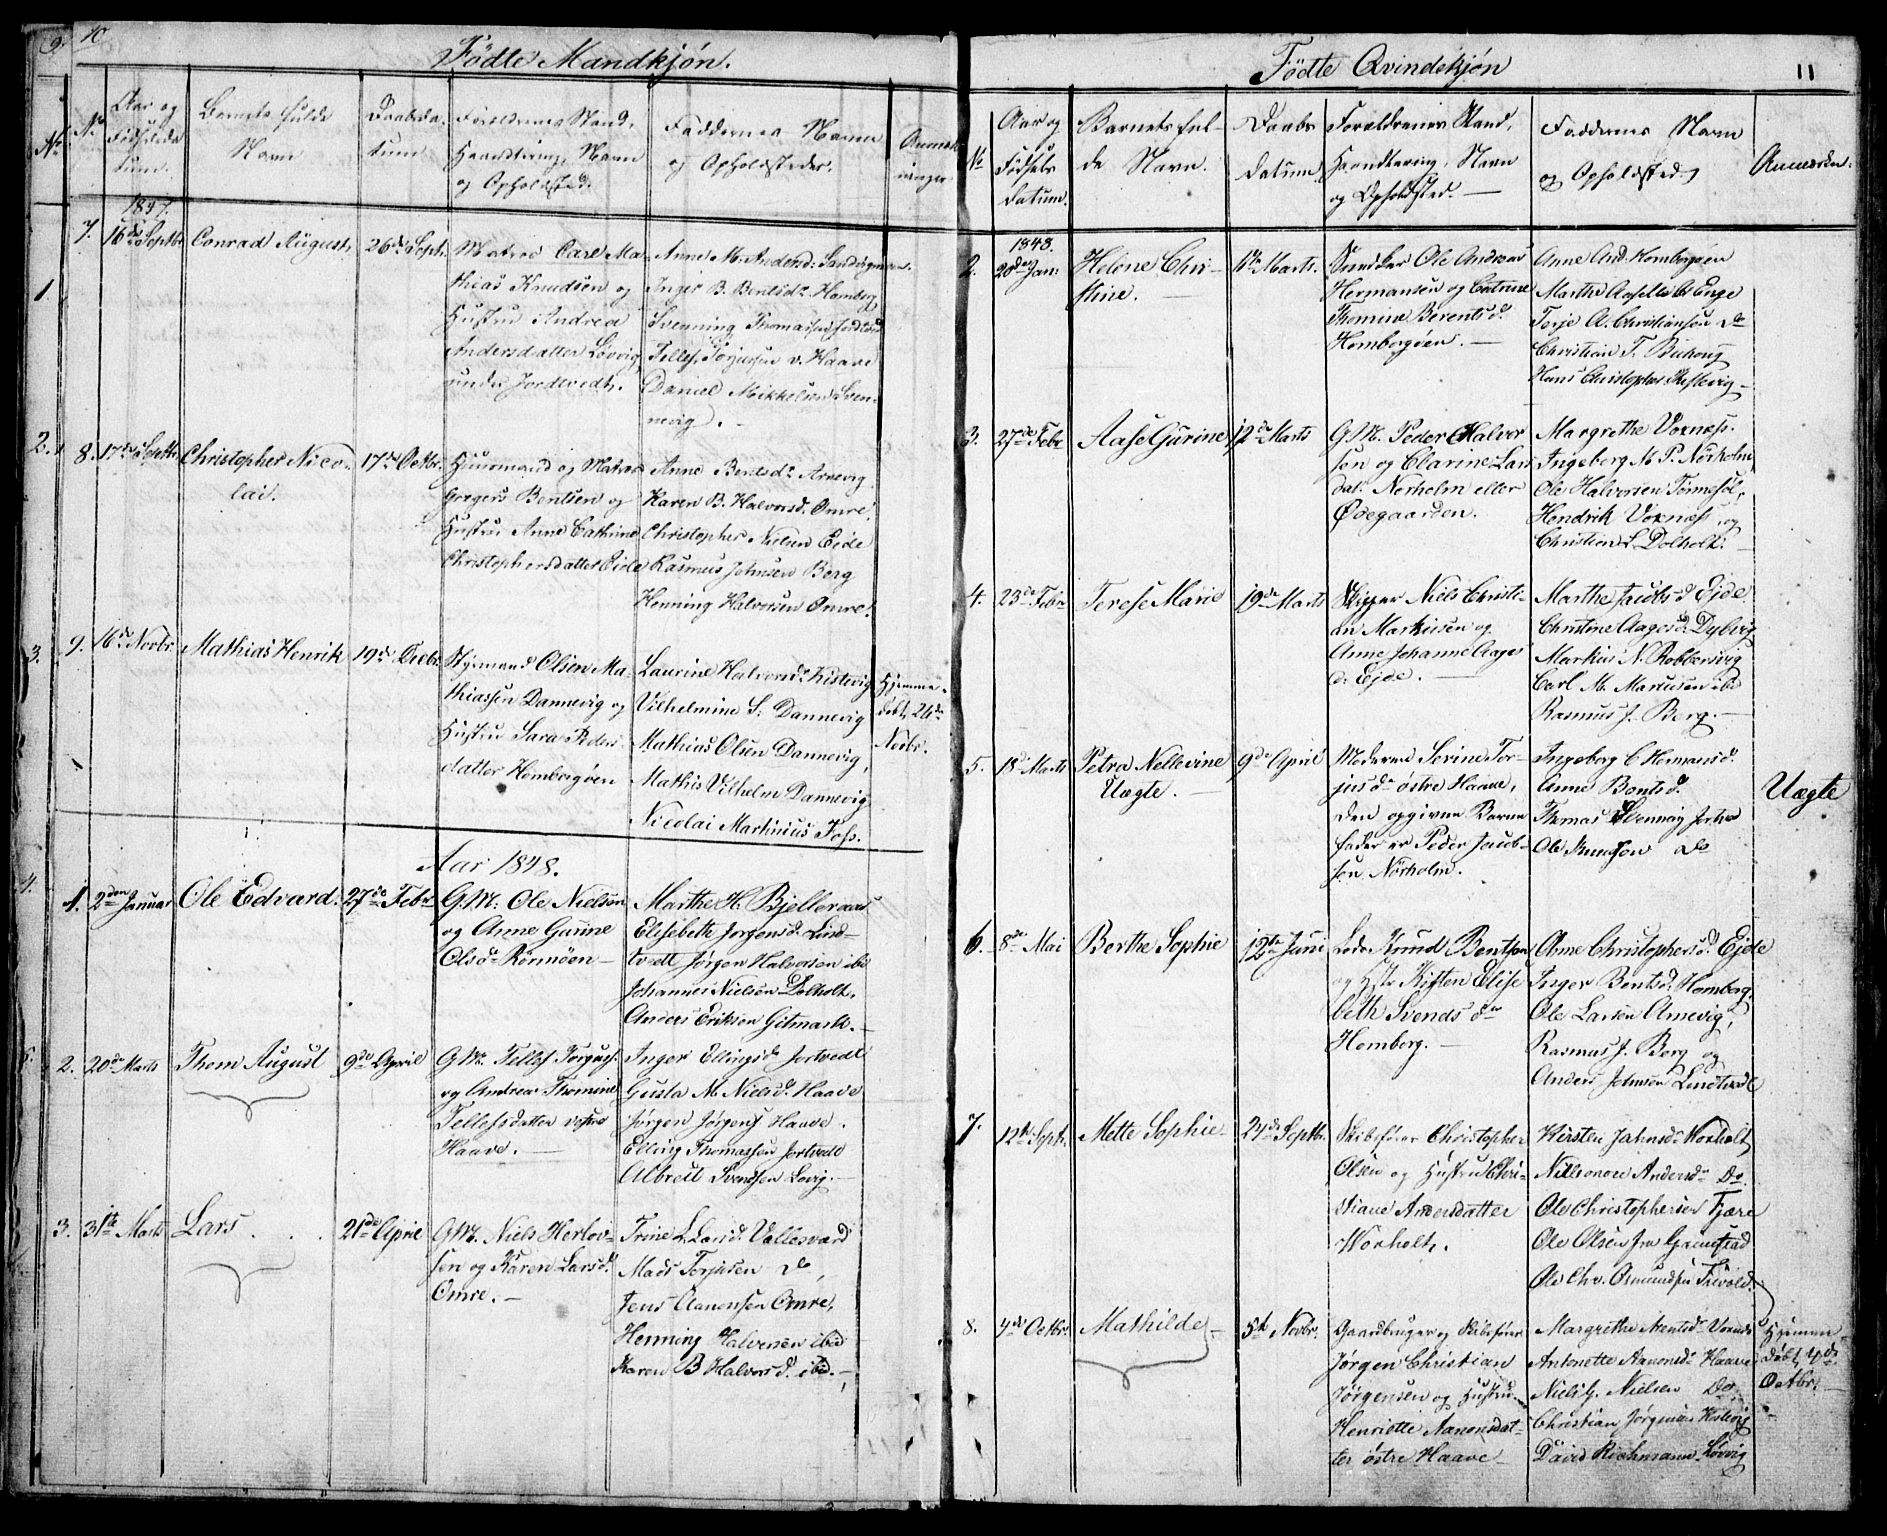 10
Fødte Mandkjøn.
No
No
Aar og
Fødselsda
tum.
Barnets fulde
Navn
Daabsda-
tum.
Forældrenes Stand,
Haandtering, Navn
og Opholdsted.
Faddernes Navn
og Opholdsteder.
Anmærk
ninger
1847.
1
7.
16de Septbr
Conrad August,
26de Septr.
Matros Carl Ma-
thias Knudsen og
Hustru Andrea
Andersdatter Løvvig
under Jordtvedt.
Anne M. Andersd:
Inger B. Bentsd. Homborg,
Svenning Thomassen Jordtved
Tellef Torjussen v. Haave
Daniel Mikkelsen Sven-
nevig.
2.
8.
17de Septbr
Christopher Nico-
lai.
17de Octbr.
Huusmand og Matros
Gregers Bentsen og
Hustru Anne Cathrine
Christophersdatter Eide
Anne Bentsdr. Arnevig
Karen B. Halvorsd. Omre
Christopher Nielsen Eide
Rasmus Johnsen Berg
Henning Halvorsen Omre.
3.
9.
16de Novbr.
Mathias Henrik
19de Decbr.
Styrmand Olsen Ma-
thiassen Dannevig og
Hustru Sara Peders-
datter Homborgøen
Laurine Halvorsd. Kistevig
Vilhelmine S. Dannevig
Mathias Olsen Dannevig,
Mathis Vilhelm Dannevig
Nicolai Martinius Foss.
Hjemme-
døbt 24de
Novbr.
Aar 1848.
4.
1.
2den Januar
Ole Edvard.
27de Febr.
G.M: Ole Nielsen
og Anne Gurine
Olsdr. Rønnøen
Marthe H. Bjelleraas
Elisebette Jørgensd. Lind-
tvedt Jørgen Halvorsen ibd
Johannes Nielsen Dolholt.
Anders Eriksen Gitmark.
5.
2.
20de Marts
Thom August
9de April
G.M. Tellef Torjuss.
og Andrea Thomine
Tellefsdatter vestre
Haave.
Inger Ellingsdr. Jortvedt
Gusta M. Nielsd. Haave
Jørgen Jørgens. Haave.
Elling Thomassen Jortvedt
Albrett Svendsen Lovig.
3.
31te Marts
Lars
21de April
G.M. Niels Herlov-
sen og Karen Larsd.
Omre.
Trine L. Larsd. Vallesværd
Mads Torjusen do
Jens Aanonsen Omre,
Henning Halvorsen ibid
Karen B Halvorsd. ibd.
Fødte Qvindekjøn
11
No
Aar og
Fødsels
datum.
Barnets ful-
de Navn.
Daabs
datum.
Forældrenes Stand,
Haandtering, Navn
og Opholdsted.
Faddernes Navn
og Opholdsted.
Anmærkn.
1848.
2.
28de Jan:
Helene Chri-
stine.
12te Marts.
Snedker Ole Andreas
Hermansen og Catrine
Thomine Berentsd.
Homborgøen.
Anne And. Homborgøen
Marthe Aasille A Enge
Torje A. Christiansen do
Christian T. Buhong
Hans Christopher Kistevig
3.
27de Febr
Aase Gurine
12de Marts
G.M. Peder Halvor
sen og Clarine Lars
dat. Nørholm eller
Ødegaarden.
Margrethe Voxnes.
Ingeborg M. P. Nørholm,
Ole Halvorsen Tønnesøl,
Hendrik Voxnes, og
Christian L. Dolholt.
4.
23de Febr
Terese Marie
19de Marts
Skipper Niels Christi-
an Markusen og
Anne Johanne Aages
d. Ejde.
Marthe Jacobs d Ejde
Christine Aagesd. Dybvig
Markus N. Robbersvig
Carl M. Markusen ibd
Rasmus J. Berg.
5.
18de Marts
Petra Nellevine
Uægte.
9de April
Moderen Serine Tor-
jusdr østre Haave,
den opgivne Barne
fader er Peder Jacob-
sen Nørholm.
Ingeborg C Hermansd.
Anne Bentsd.
Thomas Svennevig Jortve
Ole Knudsen do
Uægte
6.
8de Mai
Berthe Sophie
12te Juni
Lods Knud Bentsen
og Hstr Kisten Elise
beth Svends dr
Homborg.
Ane Christophersd. Ejde
Inger Bentsd. Homborg
Ole Larsen Arnevig,
Rasmus J. Berg og
Anders Johnsen Lindtvedt
7.
12te Sept.
Mette Sophie
24de Septbr.
Skibsfører Christopher
Olsen og Hustru Chri-
stiane Andersdatter
Woxholt.
Kirsten Jahnsd. Woxholt
Nilleonore Andersdr Do
Ole Christophersen Fjære
Ole Olsen fra Grimstad
Ole Chr. Osmundsen Trivold.
8.
4de Octbr.
Mathilde
5te Novbr.
Gaardbruger og Skibsfører
Jørgen Christian
Jørgensen og Hustru
Henriette Aanonsdat-
ter østre Haave
Margrethe Arentsdr. Voxnes
Antonette Aanonsdr. Haave
Niels G. Nielsen Do.
Christian Jørgensen Kistevig
David Richmann Løvvig
Hjemme-
døbt 4de
Octbr.